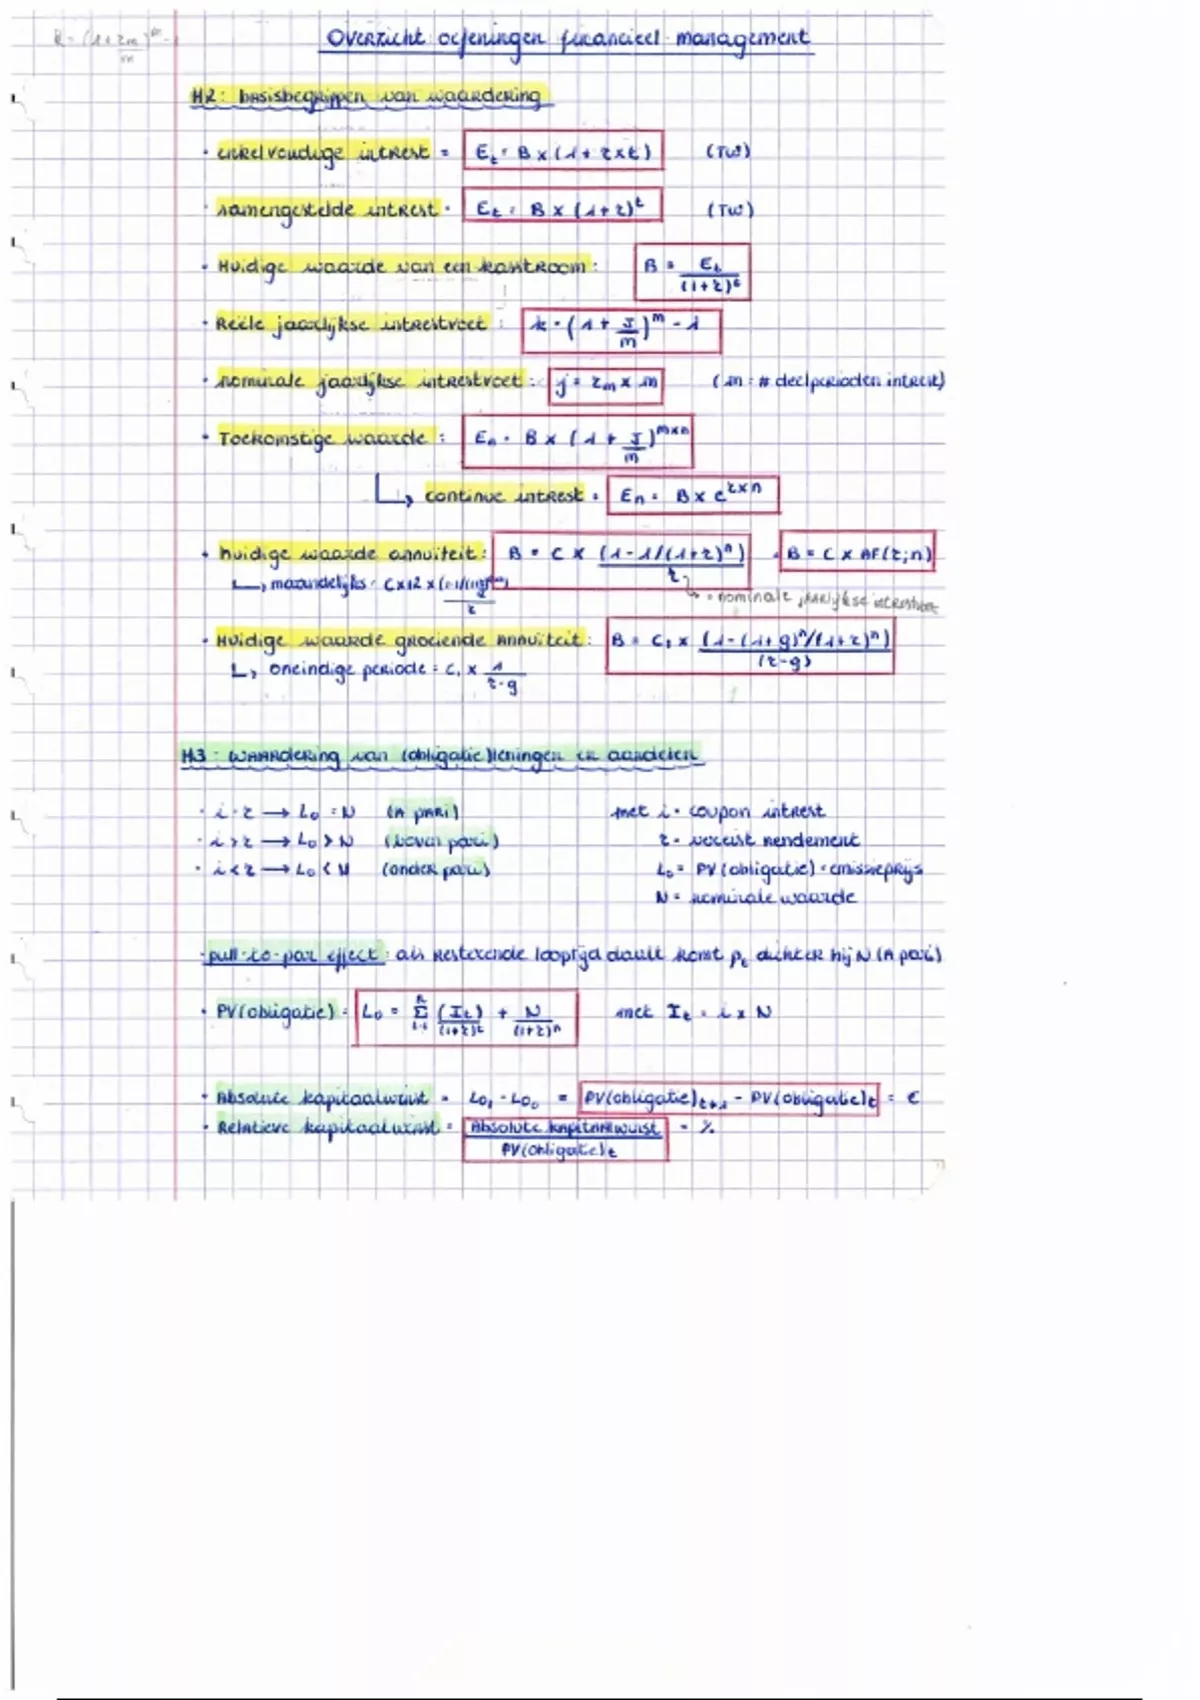 k = (1 + rm)^m - 1
m
Overzicht oefeningen financieel management
H2: basisbegrippen van waardering
• enkelvoudige intrest = Et = B x (1 + r x t) (TW)
• samengestelde intrest = Et = B x (1+r)^t (TW)
• Huidige waarde van een kasstroom: B = Et / (1+r)^t
• Reële jaarlijkse intrestvoet: k = (1 + J/m)^m - 1
• nominale jaarlijkse intrestvoet: j = rm x m (m = # deelperioden intrest)
• Toekomstige waarde: En = B x (1 + J/m)^mxn
↳ continue intrest = En = B x e^rxn
• huidige waarde annuïteit: B = C x (1-1/(1+r)^n) / r = B = C x AF(r;n)
↳ maandelijks = C x 12 x / r
↳ = nominale jaarlijkse intrestvoet
• Huidige waarde groeiende annuïteit: B = C1 x (1-(1+g)^n/(1+r)^n) / (r-g)
↳ oneindige periode = C1 x 1 / r-g
H3: waardering van (obligatie)leningen en aandelen
• i = r → L0 = N (A pari) met i = coupon intrest
• i > r → L0 > N (boven pari) r = vereist rendement
• i < r → L0 < N (onder pari) L0 = PV(obligatie) = emissieprijs
N = nominale waarde
• pull-to-par effect: als resterende looptijd daalt komt pt dichter bij N (A pari)
• PV(obligatie) = L0 = Σ (It) / (1+r)^t + N / (1+r)^n met It = i x N
• Absolute kapitaalwinst = L01 - L00 = PV(obligatie)t+1 - PV(obligatie)t = €
• Relatieve kapitaalwinst = Absolute kapitaalwinst = %
PV(obligatie)t